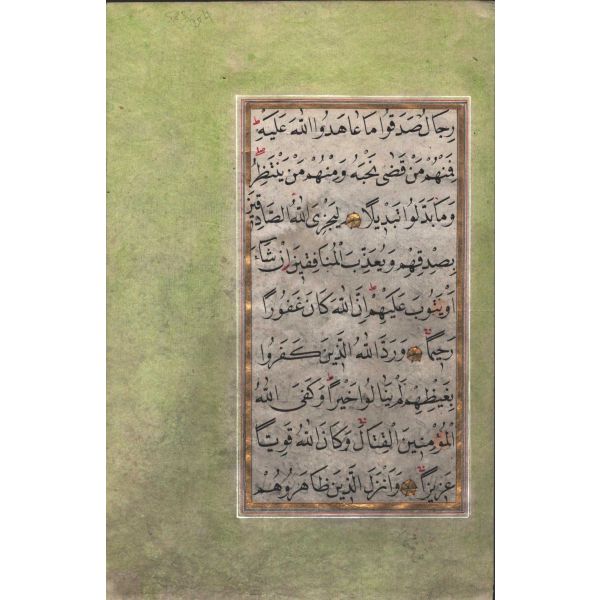 رِجَالٌ صَدَقُوا مَا عَاهَدُوا اللّٰهَ عَلَيْهِ
فَمِنْهُمْ مَنْ قَضٰى نَحْبَهُ وَمِنْهُمْ مَنْ يَنْتَظِرُ
وَمَا بَدَّلُوا تَبْدِيلًا لِيَجْزِيَ اللّٰهُ الصَّادِقِينَ
بِصِدْقِهِمْ وَيُعَذِّبَ الْمُنَافِقِينَ اِنْ شَاءَ
اَوْ يَتُوبَ عَلَيْهِمْ اِنَّ اللّٰهَ كَانَ غَفُورًا
رَحِيمًا وَرَدَّ اللّٰهُ الَّذِينَ كَفَرُوا
بِغَيْظِهِمْ لَمْ يَنَالُوا خَيْرًا وَكَفَى اللّٰهُ
الْمُؤْمِنِينَ الْقِتَالَ وَكَانَ اللّٰهُ قَوِيًّا
عَزِيزًا وَاَنْزَلَ الَّذِينَ ظَاهَرُوهُمْ